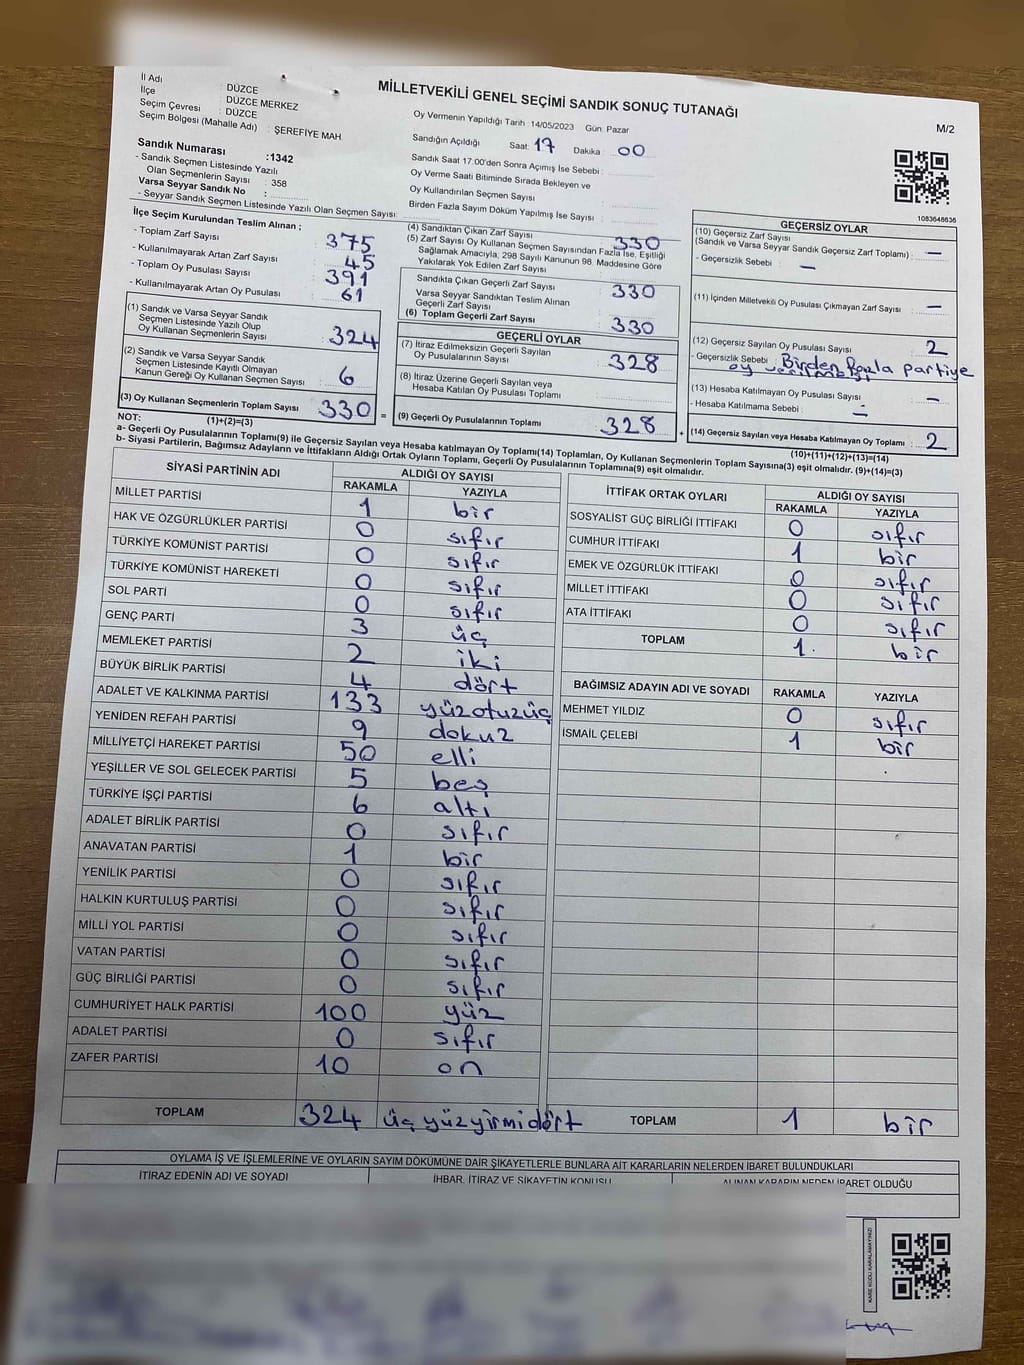 MİLLETVEKİLİ GENEL SEÇİMİ SANDIK SONUÇ TUTANAĞI
M/2
İl Adı : DÜZCE
İlçe : DÜZCE MERKEZ
Seçim Çevresi : DÜZCE
Seçim Bölgesi (Mahalle Adı) : ŞEREFİYE MAH.
Sandık Numarası :1342
- Sandık Seçmen Listesinde Yazılı
Olan Seçmenlerin Sayısı : 358
Varsa Seyyar Sandık No :
- Seyyar Sandık Seçmen Listesinde Yazılı Olan Seçmen Sayısı:
Oy Vermenin Yapıldığı Tarih :14/05/2023 Gün: Pazar
Sandığın Açıldığı Saat: 17 Dakika : 00
Sandık Saat 17:00'den Sonra Açımış İse Sebebi :
Oy Verme Saati Bitiminde Sırada Bekleyen ve
Oy Kullandırılan Seçmen Sayısı
Birden Fazla Sayım Döküm Yapılmış İse Sayısı :
1083648636
İlçe Seçim Kurulundan Teslim Alınan ;
- Toplam Zarf Sayısı : 375
- Kullanılmayarak Artan Zarf Sayısı : 45
- Toplam Oy Pusulası Sayısı : 391
- Kullanılmayarak Artan Oy Pusulası : 61
(1) Sandık ve Varsa Seyyar Sandık
Seçmen Listesinde Yazılı Olup
Oy Kullanan Seçmenlerin Sayısı : 324
(2) Sandık ve Varsa Seyyar Sandık
Seçmen Listesinde Kayıtlı Olmayan
Kanun Gereği Oy Kullanan Seçmen Sayısı : 6
(3) Oy Kullanan Seçmenlerin Toplam Sayısı 330 =
(1)+(2)=(3)
(4) Sandıktan Çıkan Zarf Sayısı : 330
(5) Zarf Sayısı Oy Kullanan Seçmen Sayısından Fazla İse, Eşitliği
Sağlamak Amacıyla, 298 Sayılı Kanunun 98. Maddesine Göre
Yakılarak Yok Edilen Zarf Sayısı
Sandıkta Çıkan Geçerli Zarf Sayısı : 330
Varsa Seyyar Sandıktan Teslim Alınan
Geçerli Zarf Sayısı
(6) Toplam Geçerli Zarf Sayısı : 330
GEÇERLİ OYLAR
(7) İtiraz Edilmeksizin Geçerli Sayılan
Oy Pusulalarının Sayısı : 328
(8) İtiraz Üzerine Geçerli Sayılan veya
Hesaba Katılan Oy Pusulası Toplamı :
(9) Geçerli Oy Pusulalarının Toplamı : 328 +
GEÇERSİZ OYLAR
(10) Geçersiz Zarf Sayısı
(Sandık ve Varsa Seyyar Sandık Geçersiz Zarf Toplamı) : —
- Geçersizlik Sebebi : —
(11) İçinden Milletvekili Oy Pusulası Çıkmayan Zarf Sayısı : —
(12) Geçersiz Sayılan Oy Pusulası Sayısı : 2
- Geçersizlik Sebebi : Birden fazla partiye
oy verilmesi
(13) Hesaba Katılmayan Oy Pusulası Sayısı : —
- Hesaba Katılmama Sebebi : —
(14) Geçersiz Sayılan veya Hesaba Katılmayan Oy Toplamı : 2
(10)+(11)+(12)+(13)=(14)
NOT:
a- Geçerli Oy Pusulalarının Toplamı(9) ile Geçersiz Sayılan veya Hesaba katılmayan Oy Toplamı(14) Toplamları, Oy Kullanan Seçmenlerin Toplam Sayısına(3) eşit olmalıdır. (9)+(14)=(3)
b- Siyasi Partilerin, Bağımsız Adayların ve İttifakların Aldığı Ortak Oyların Toplamı, Geçerli Oy Pusulalarının Toplamına(9) eşit olmalıdır.
SİYASİ PARTİNİN ADI ALDIĞI OY SAYISI
RAKAMLA YAZIYLA
MİLLET PARTİSİ 1 bir
HAK VE ÖZGÜRLÜKLER PARTİSİ 0 sıfır
TÜRKİYE KOMÜNİST PARTİSİ 0 sıfır
TÜRKİYE KOMÜNİST HAREKETİ 0 sıfır
SOL PARTİ 0 sıfır
GENÇ PARTİ 3 üç
MEMLEKET PARTİSİ 2 iki
BÜYÜK BİRLİK PARTİSİ 4 dört
ADALET VE KALKINMA PARTİSİ 133 yüzotuzüç
YENİDEN REFAH PARTİSİ 9 dokuz
MİLLİYETÇİ HAREKET PARTİSİ 50 elli
YEŞİLLER VE SOL GELECEK PARTİSİ 5 beş
TÜRKİYE İŞÇİ PARTİSİ 6 altı
ADALET BİRLİK PARTİSİ 0 sıfır
ANAVATAN PARTİSİ 1 bir
YENİLİK PARTİSİ 0 sıfır
HALKIN KURTULUŞ PARTİSİ 0 sıfır
MİLLİ YOL PARTİSİ 0 sıfır
VATAN PARTİSİ 0 sıfır
GÜÇ BİRLİĞİ PARTİSİ 0 sıfır
CUMHURİYET HALK PARTİSİ 100 yüz
ADALET PARTİSİ 0 sıfır
ZAFER PARTİSİ 10 on
TOPLAM 324 üçyüzyirmidört
İTTİFAK ORTAK OYLARI ALDIĞI OY SAYISI
RAKAMLA YAZIYLA
SOSYALİST GÜÇ BİRLİĞİ İTTİFAKI 0 sıfır
CUMHUR İTTİFAKI 1 bir
EMEK VE ÖZGÜRLÜK İTTİFAKI 0 sıfır
MİLLET İTTİFAKI 0 sıfır
ATA İTTİFAKI 0 sıfır
TOPLAM 1 bir
BAĞIMSIZ ADAYIN ADI VE SOYADI RAKAMLA YAZIYLA
MEHMET YILDIZ 0 sıfır
İSMAİL ÇELEBİ 1 bir
TOPLAM 1 bir
OYLAMA İŞ VE İŞLEMLERİNE VE OYLARIN SAYIM DÖKÜMÜNE DAİR ŞİKAYETLERLE BUNLARA AİT KARARLARIN NELERDEN İBARET BULUNDUKLARI
İTİRAZ EDENİN ADI VE SOYADI İHBAR, İTİRAZ VE ŞİKAYETİN KONUSU ALINAN KARARIN NEDEN İBARET OLDUĞU
KARE KODU KARALAMAYINIZ!